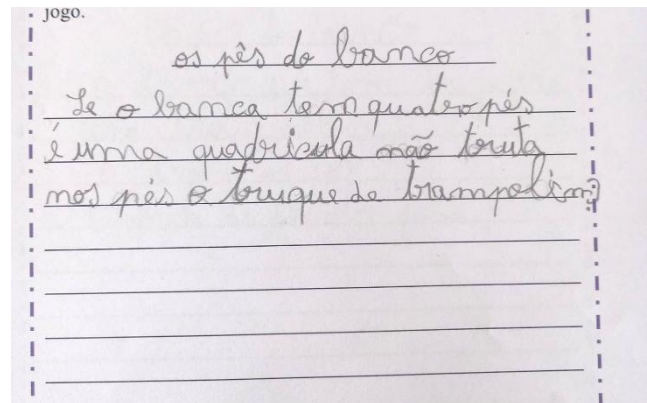 jogo.
os pês do banco
Se o banca tem quatro pés
é uma quadricula não truta
nos pés o truque de trampolim?